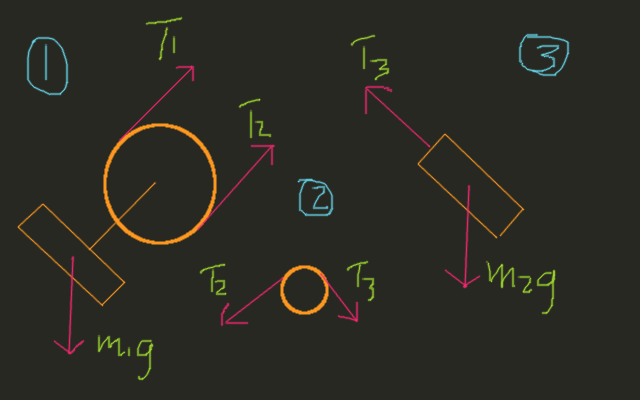 1
T1
T2
m1g
2
T2
T3
3
T3
m2g